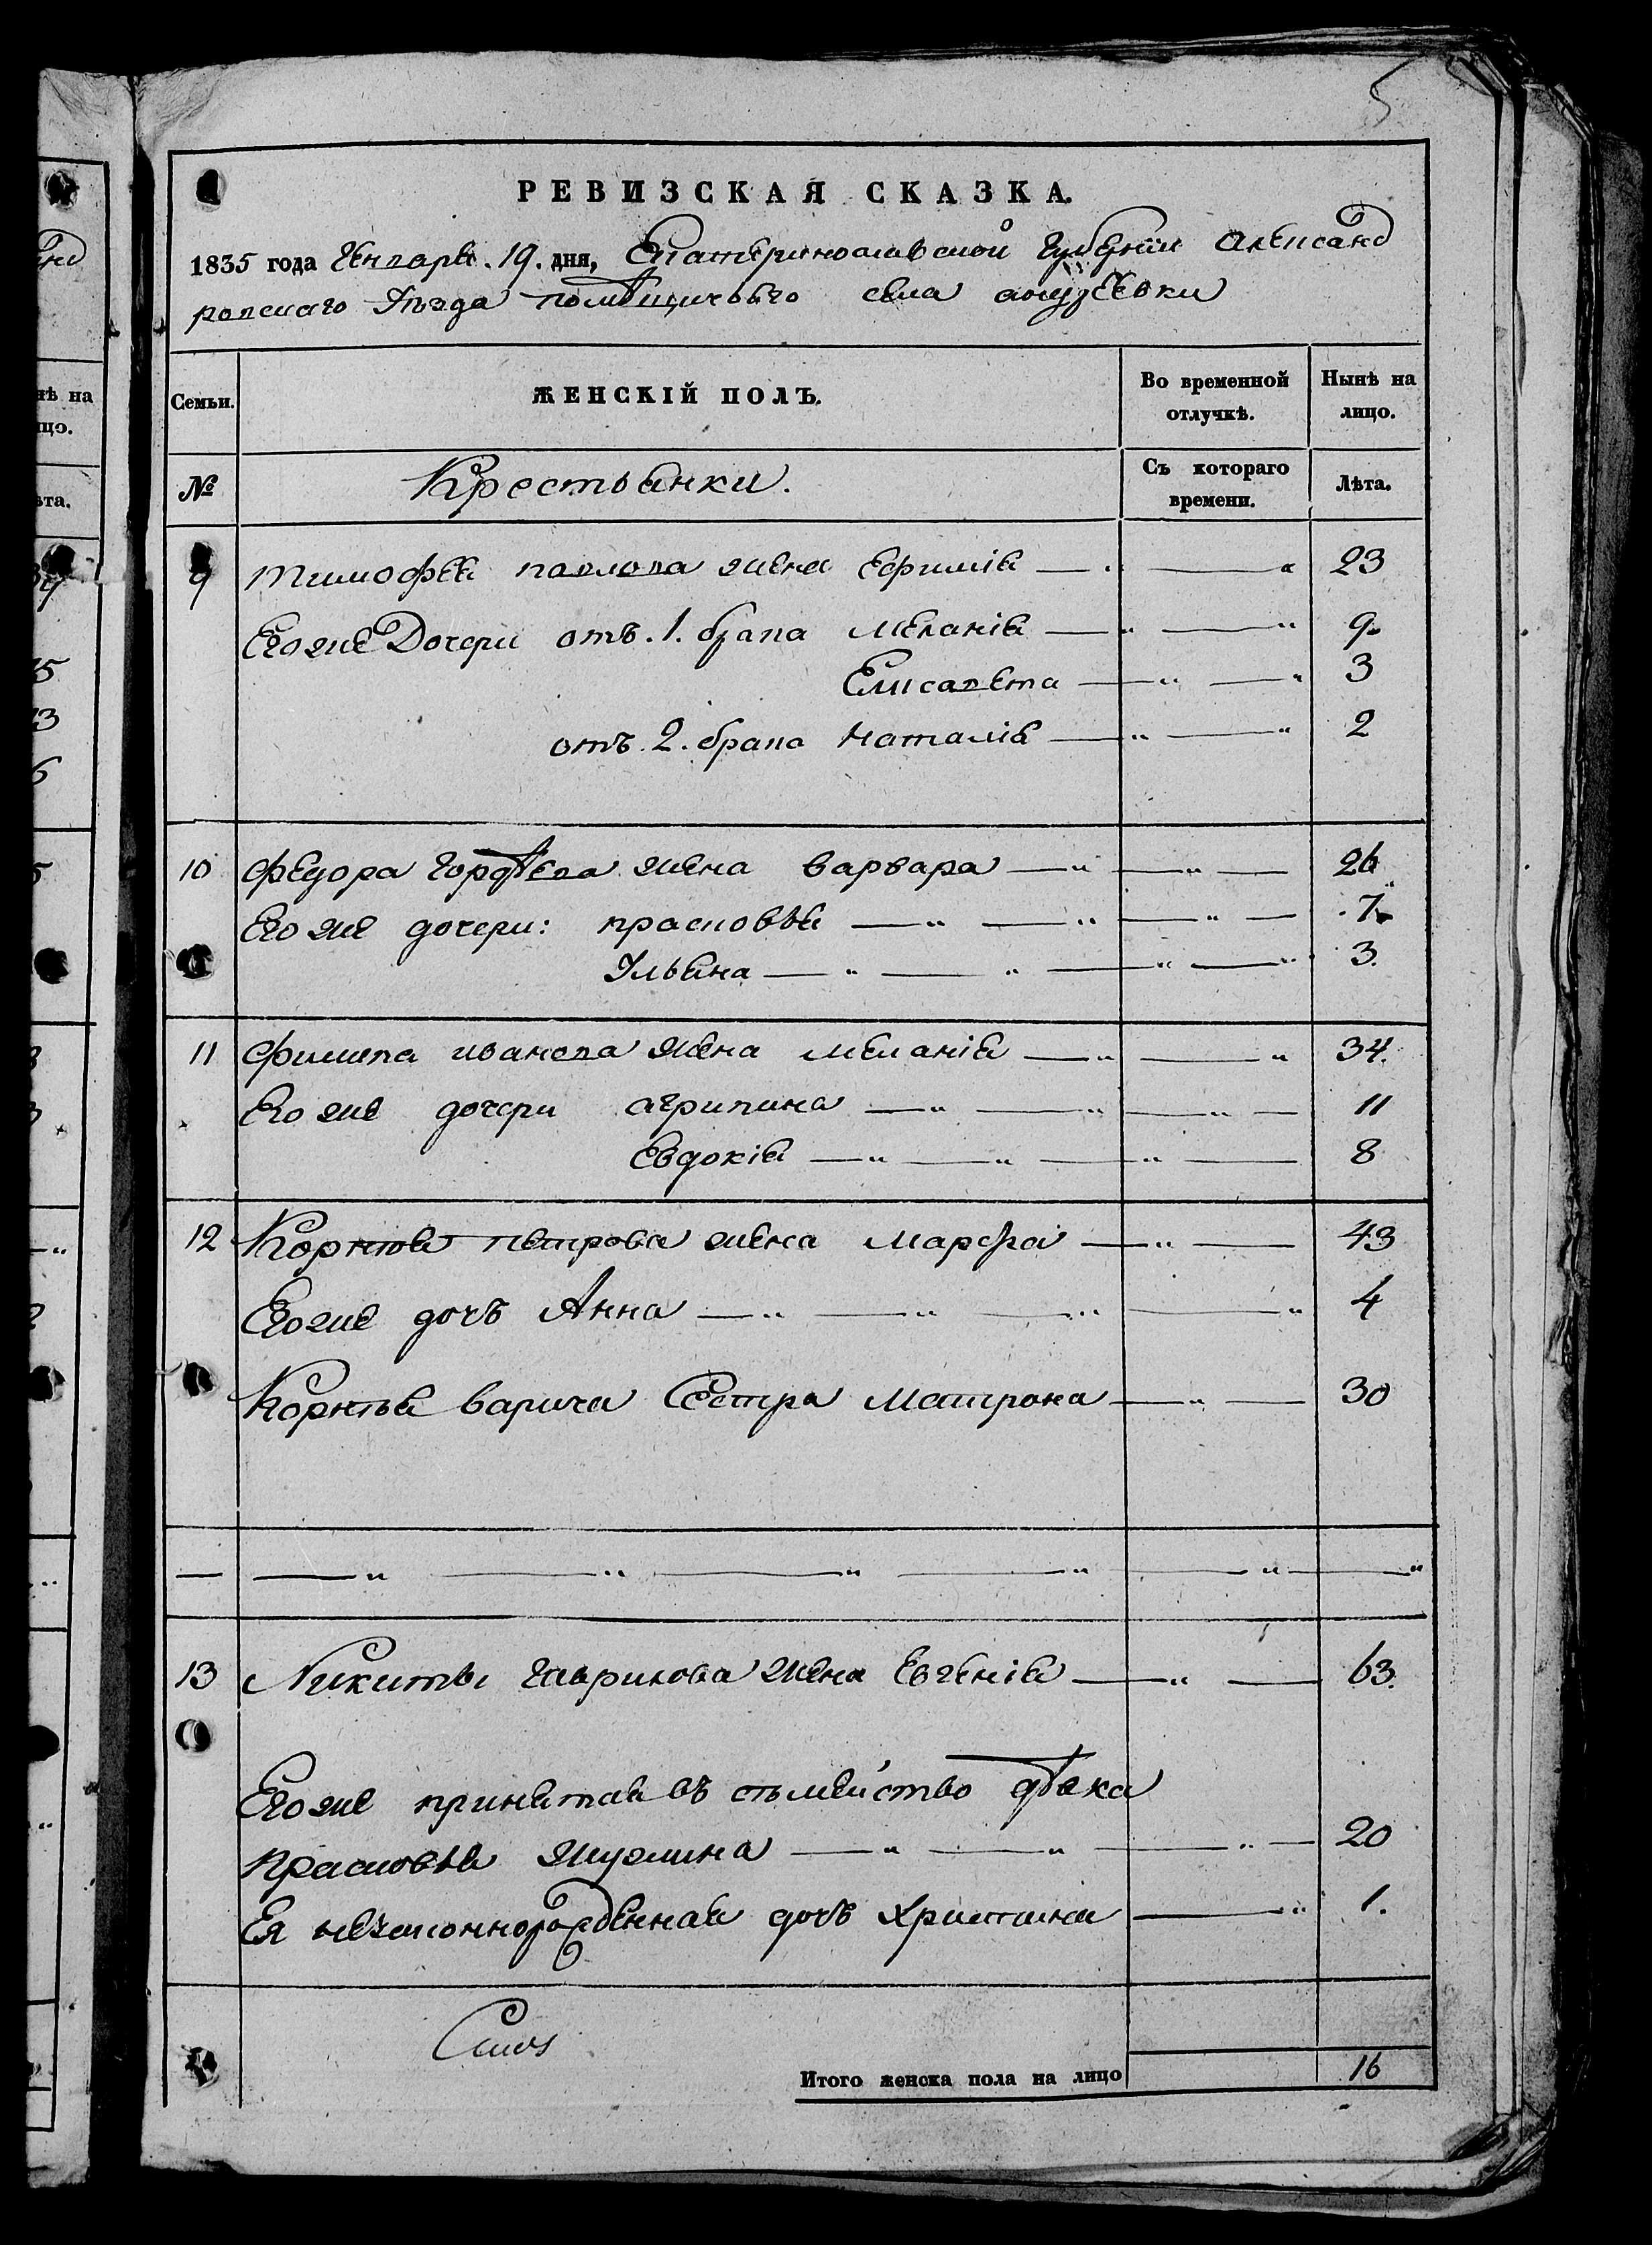 5
РЕВИЗСКАЯ СКАЗКА.
1835 года Генваря. 19. дня, Екатеринославской Губернїи Александ
ровскаго Уѣзда помѣщичьяго села
Семьи.
ЖЕНСКІЙ ПОЛЪ.
Во временной отлучкѣ.
Нынѣ на лицо.
№
Крестьянки.
Съ котораго времени.
Лѣта.
9 Тимофея павлова жена Ефимія — 23
Его же Дочери отъ. 1. брака Меланія — 9.
Елисавета — 3
отъ. 2. брака Наталія — 2
10 Федора Гордѣева жена варвара — 26
Его же дочери: прасковья — 7.
Ульяна — 3.
11 Филипа иванова жена меланія — 34.
Его же дочери агрипина — 11
Евдокія — 8
12 Корнѣя петрова жена марфа — 43
Его же дочь Анна — 4
Корнѣя варича Сестра Матрона — 30
13 Никиты гаврилова жена Евгенія — 63.
Его же принятая въ сѣмейство дѣвка
прасковья — 20
Ея незаконнорожденная дочь Христина — 1.
Итого женска пола на лицо 16
нѣ на
цо.
ѣта.